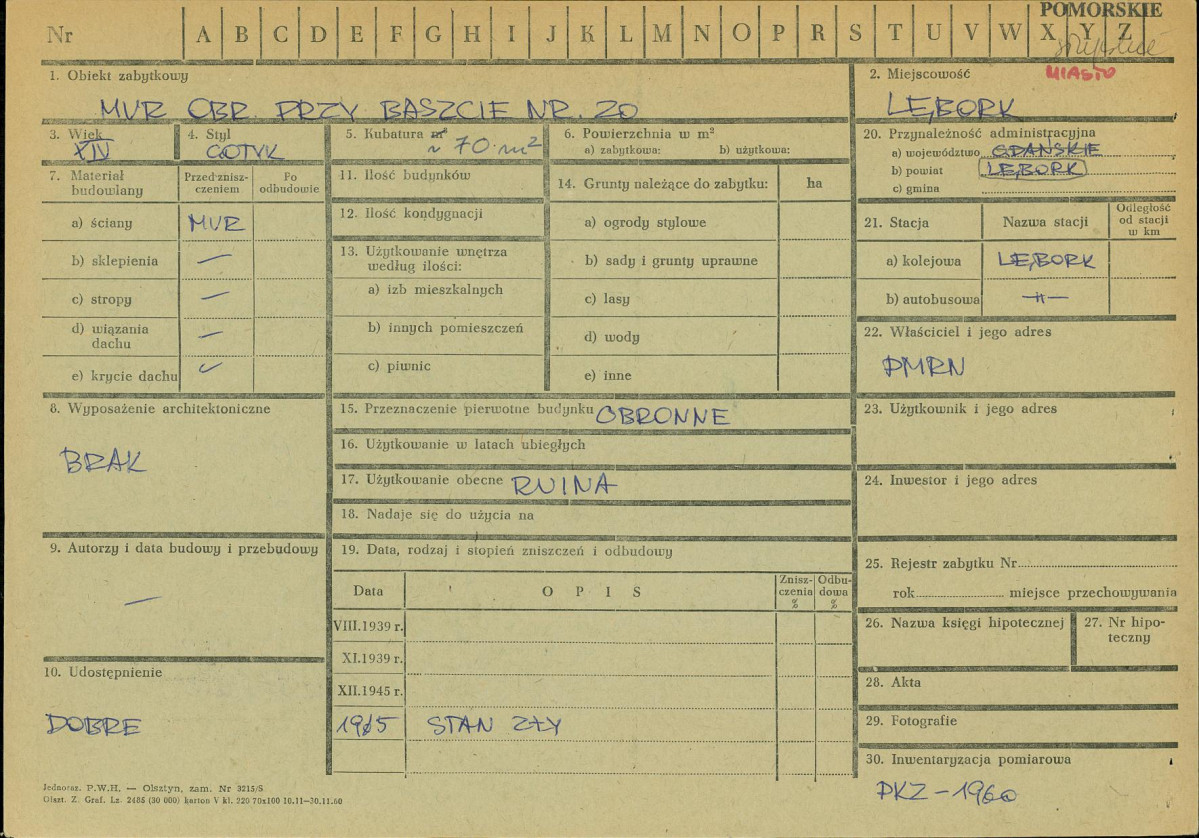 POMORSKIE
Nr A B C D E F G H I J K L M N O P R S T U V W X Y Z
MIASTO
1. Obiekt zabytkowy
MUR OBR. PRZY BASZCIE NR. 20
2. Miejscowość
LĘBORK
3. Wiek
XIV
4. Styl
GOTYK
5. Kubatura m³
~ 70 m²
6. Powierzchnia w m²
a) zabytkowa: b) użytkowa:
20. Przynależność administracyjna
a) województwo GDAŃSKIE
b) powiat LĘBORK
c) gmina
7. Materiał budowlany
Przed znisz-
czeniem
Po
odbudowie
a) ściany MUR
b) sklepienia —
c) stropy —
d) wiązania
dachu —
e) krycie dachu
11. Ilość budynków
12. Ilość kondygnacji
13. Użytkowanie wnętrza
według ilości:
a) izb mieszkalnych
b) innych pomieszczeń
c) piwnic
14. Grunty należące do zabytku: ha
a) ogrody stylowe
b) sady i grunty uprawne
c) lasy
d) wody
e) inne
21. Stacja Nazwa stacji
Odległość
od stacji
w km
a) kolejowa LĘBORK
b) autobusowa —"—
22. Właściciel i jego adres
PMRN
8. Wyposażenie architektoniczne
BRAK
15. Przeznaczenie pierwotne budynku OBRONNE
16. Użytkowanie w latach ubiegłych
17. Użytkowanie obecne RUINA
18. Nadaje się do użycia na
23. Użytkownik i jego adres
24. Inwestor i jego adres
9. Autorzy i data budowy i przebudowy
—
19. Data, rodzaj i stopień zniszczeń i odbudowy
Data OPIS
Znisz-
czenia
%
Odbu-
dowa
%
VIII.1939 r.
XI.1939 r.
XII.1945 r.
STAN ZŁY
10. Udostępnienie
DOBRE
25. Rejestr zabytku Nr
rok miejsce przechowywania
26. Nazwa księgi hipotecznej
27. Nr hipo-
teczny
28. Akta
29. Fotografie
30. Inwentaryzacja pomiarowa
PKZ - 1960
Jednoraz. P.W.H. — Olsztyn, zam. Nr 3215/S
Olszt. Z. Graf. Lz. 2485 (30 000) karton V kl. 220 70x100 10.11—30.11.60